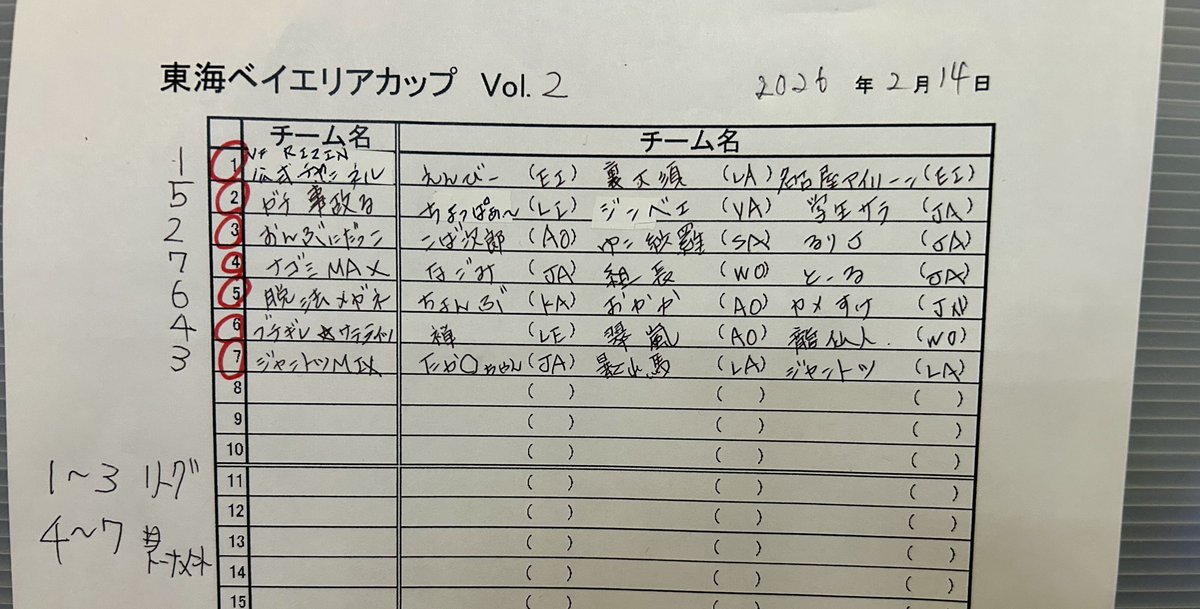 東海ベイエリアカップ Vol. 2 2026 年 2 月 14 日
チーム名 チーム名
1 1 VF RIZIN 公式チャンネル えんびー (EI) 裏文須 (LA) 名古屋アイリーン (EI)
5 2 ガチ事故る ちょっぱぁ〜 (LI) ジンベエ (VA) 学生サラ (JA)
2 3 おんぶにだっこ こば次郎 (AO) ゆン紗羅 (SA) るり (JA)
7 4 ナゴミMAX なごみ (JA) 組長 (WO) と〜る (JA)
6 5 脱法メガネ ちょんぶ (KA) おかか (AO) カメすけ
4 6 ブチギレ☆サテライツ 禅 (LE) 翠嵐 (AO) 龍仙人. (WO)
3 7 ジャントツMIX たか〇ちゃん (JA) (LA) ジャントツ (LA)
8 ( ) ( ) ( )
9 ( ) ( ) ( )
10 ( ) ( ) ( )
1〜3 リーグ
11 ( ) ( ) ( )
12 ( ) ( ) ( )
4〜7 トーナメント
13 ( ) ( ) ( )
14 ( ) ( ) ( )
15 ( ) ( ) ( )